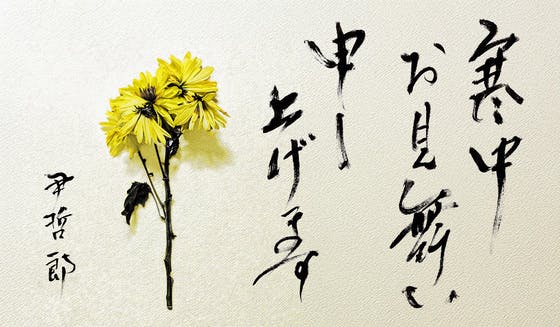 寒中
お見舞い
申し
上げます
尹哲郎